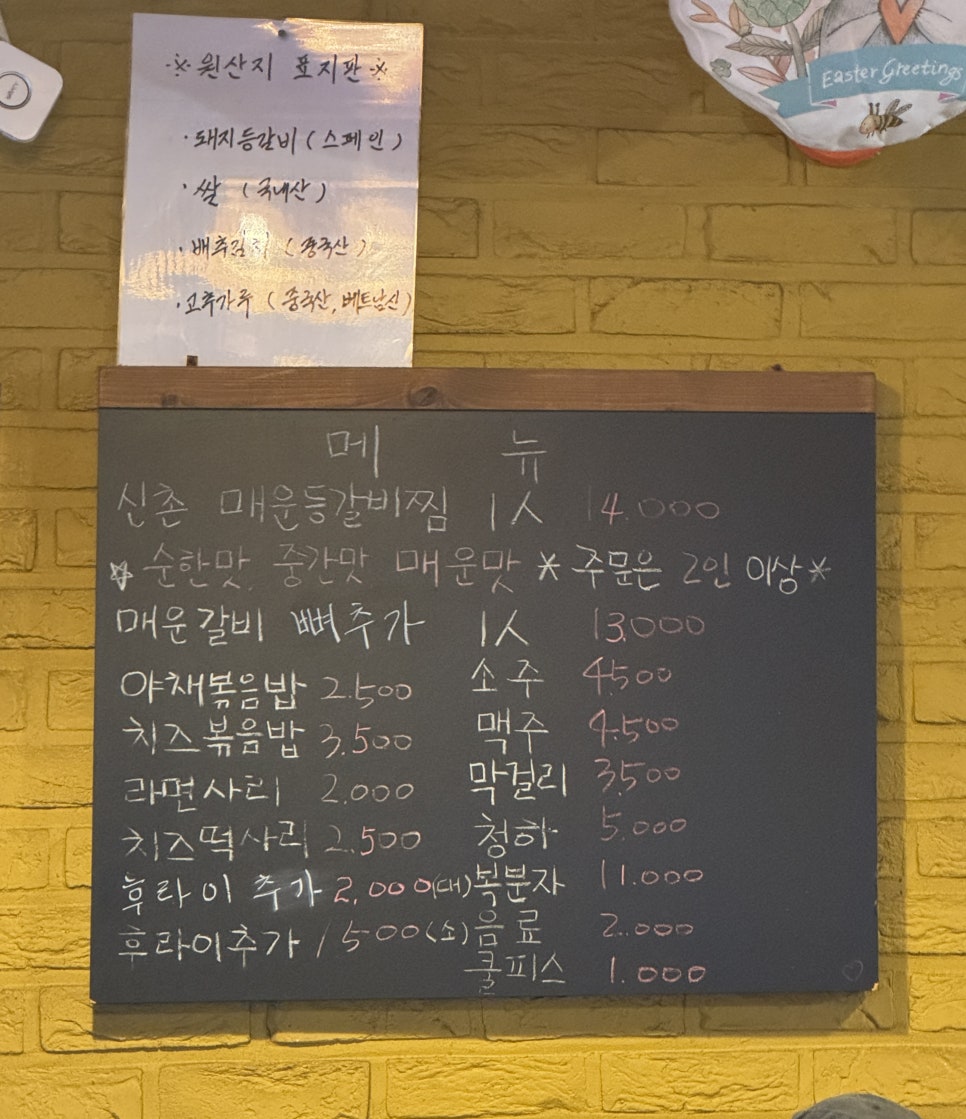 ※ 원산지 표지판 ※
· 돼지등갈비 ( 스페인 )
· 쌀 ( 국내산 )
· 배추김치 ( 중국산 )
· 고추가루 ( 중국산, 베트남산 )
Easter Greetings
메 뉴
신촌 매운등갈비찜 1人 14.000
☆ 순한맛, 중간맛 매운맛 * 주문은 2인 이상 *
매운갈비 뼈추가 1人 13.000
야채볶음밥 2.500 소주 4.500
치즈볶음밥 3.500 맥주 4.500
라면사리 2.000 막걸리 3.500
치즈떡사리 2.500 청하 5.000
후라이 추가 2,000(대) 복분자 11.000
후라이추가 1500(소) 음료 2.000
쿨피스 1.000